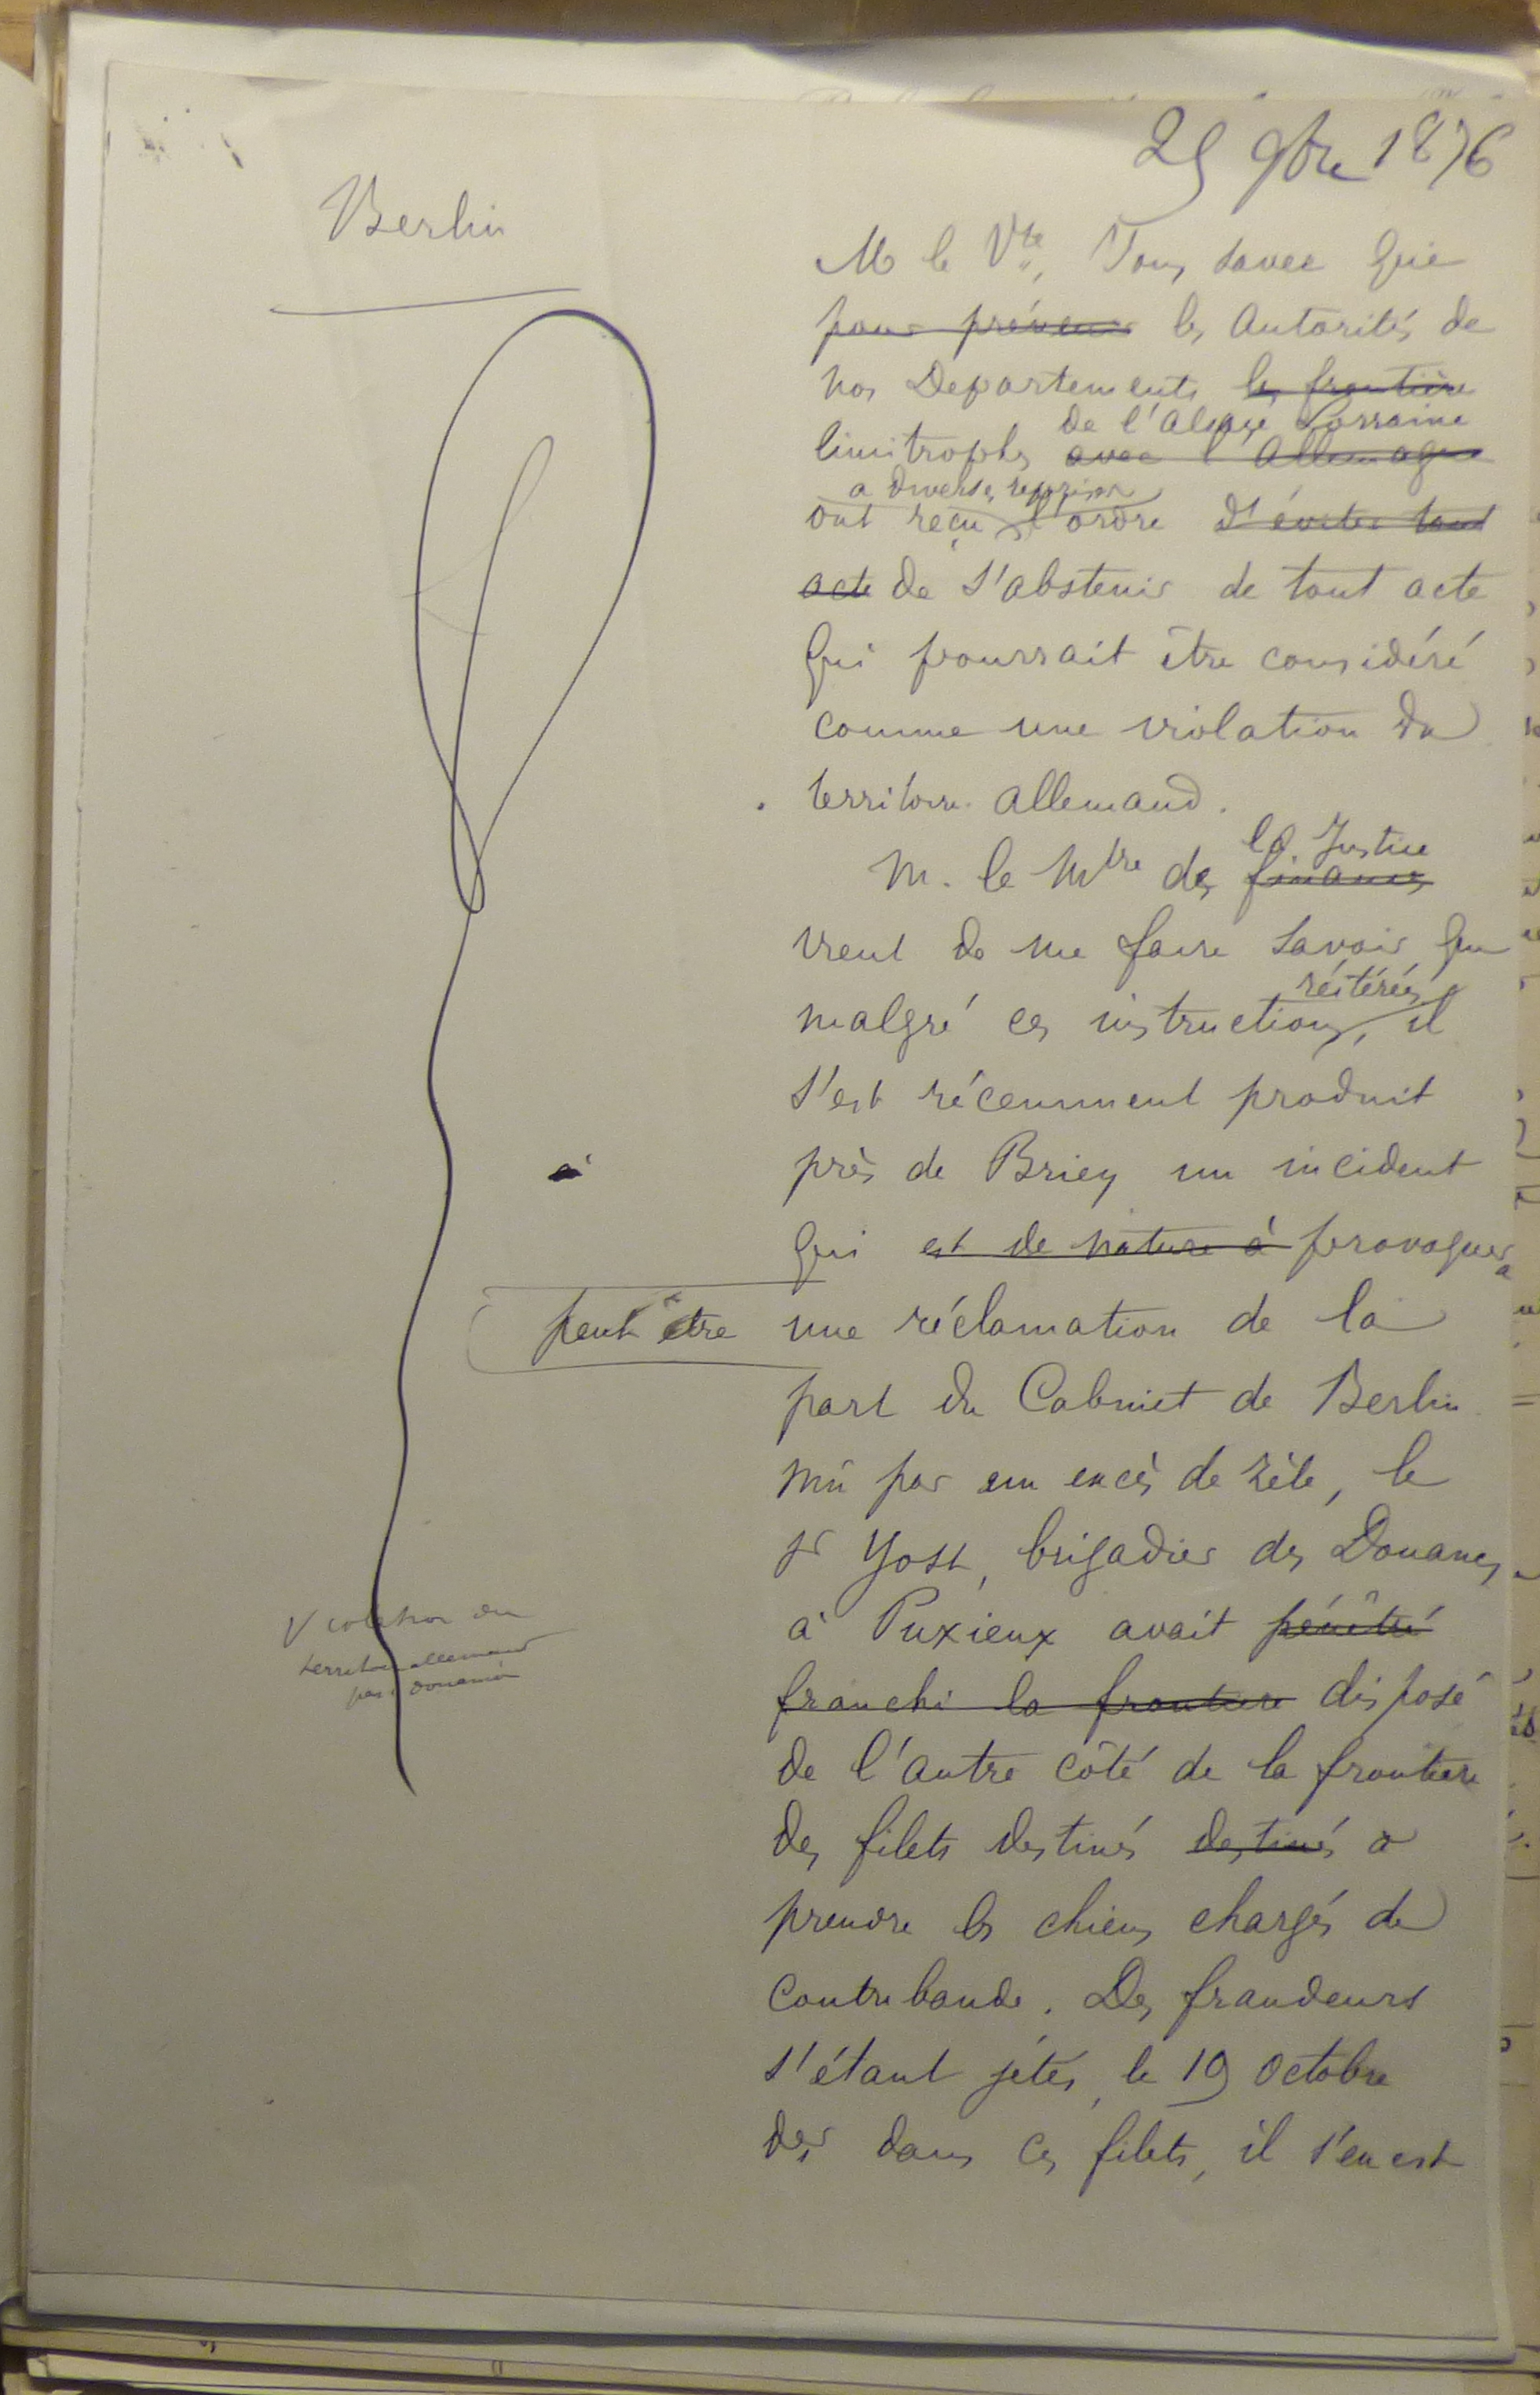 25 9bre 1876
Berlin
M le Vte, Vous savez que
pour prévenir les Autorités de
nos Departements les frontière
de l'Alsace Lorraine
limitrophes avec l'Allemagne
a diverses reprises
ont reçu l'ordre d'éviter tout
acte de s'abstenir de tout acte
qui pourrait être considéré
comme une violation du
territoire allemand.
la Justice
M. le Mtre des finances
vient de me faire savoir que
réitérées
malgré ces instructions, il
s'est récemment produit
près de Briey un incident
qui est de nature à provoquera
peut être une réclamation de la
part du Cabinet de Berlin
Mû par un excès de zèle, le
sr Yost, brigadier des Douanes
à Puxieux avait pénétré
franchi la frontiere disposé
de l'autre côté de la frontiere
des filets destinés destinés a
prendre les chiens chargés de
contrebande. Des fraudeurs
s'étant jetés, le 19 Octobre
der dans ces filets, il s'en est
Violation du
territoire allemand
par douanier